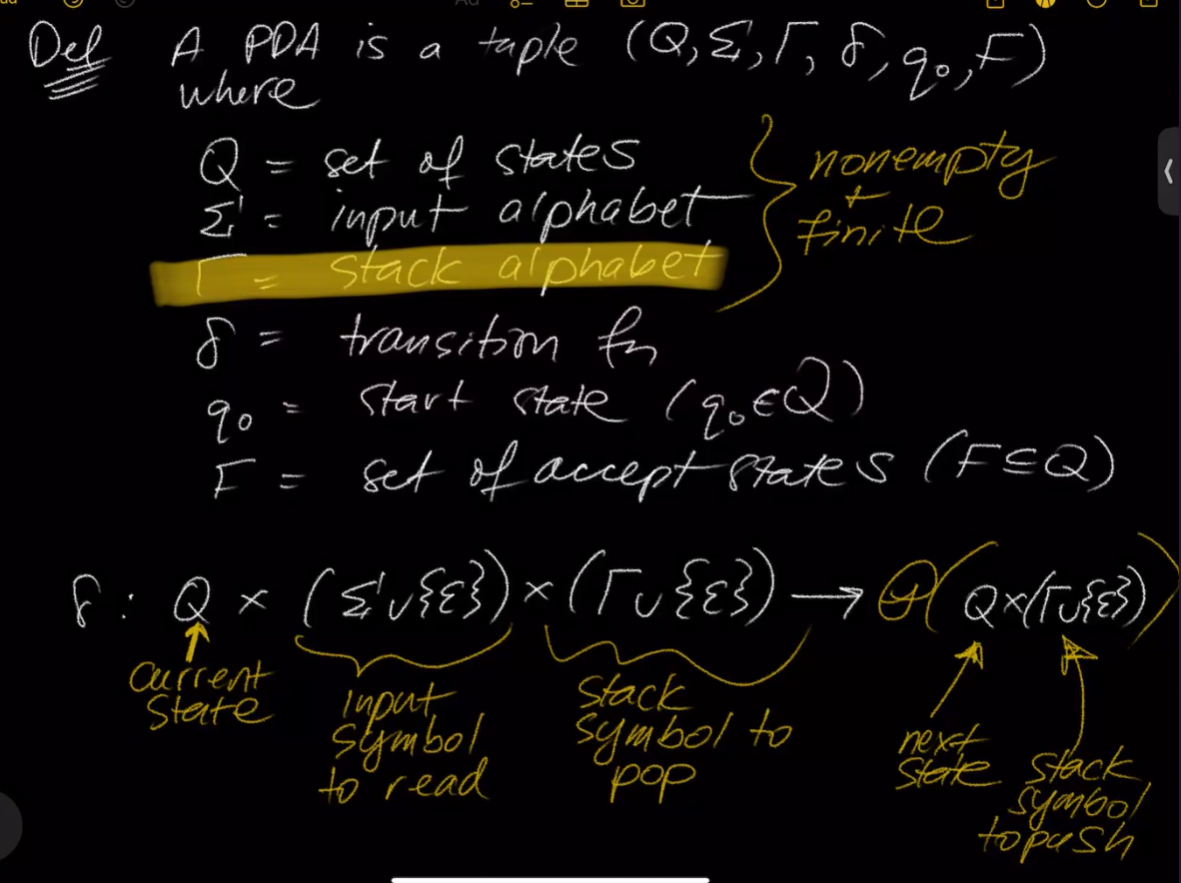 Def A PDA is a tuple (Q, Σ, Γ, δ, q₀, F)
where
Q = set of states
Σ = input alphabet
Γ = stack alphabet
nonempty
+
finite
δ = transition fn
q₀ = start state (q₀ ∈ Q)
F = set of accept states (F ⊆ Q)
δ: Q × (Σ ∪ {ε}) × (Γ ∪ {ε}) → 𝒫(Q × (Γ ∪ {ε}))
current
state
input
symbol
to read
stack
symbol to
pop
next
state
stack
symbol
to push